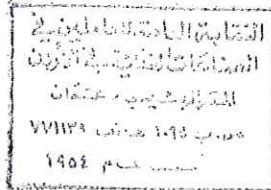 النقابة العامة للعاملين في
الصناعات الغذائية في الأردن
المركز الرئيسي - عمان
ص.ب ١٠٩٤ هاتف
عام ١٩٥٤